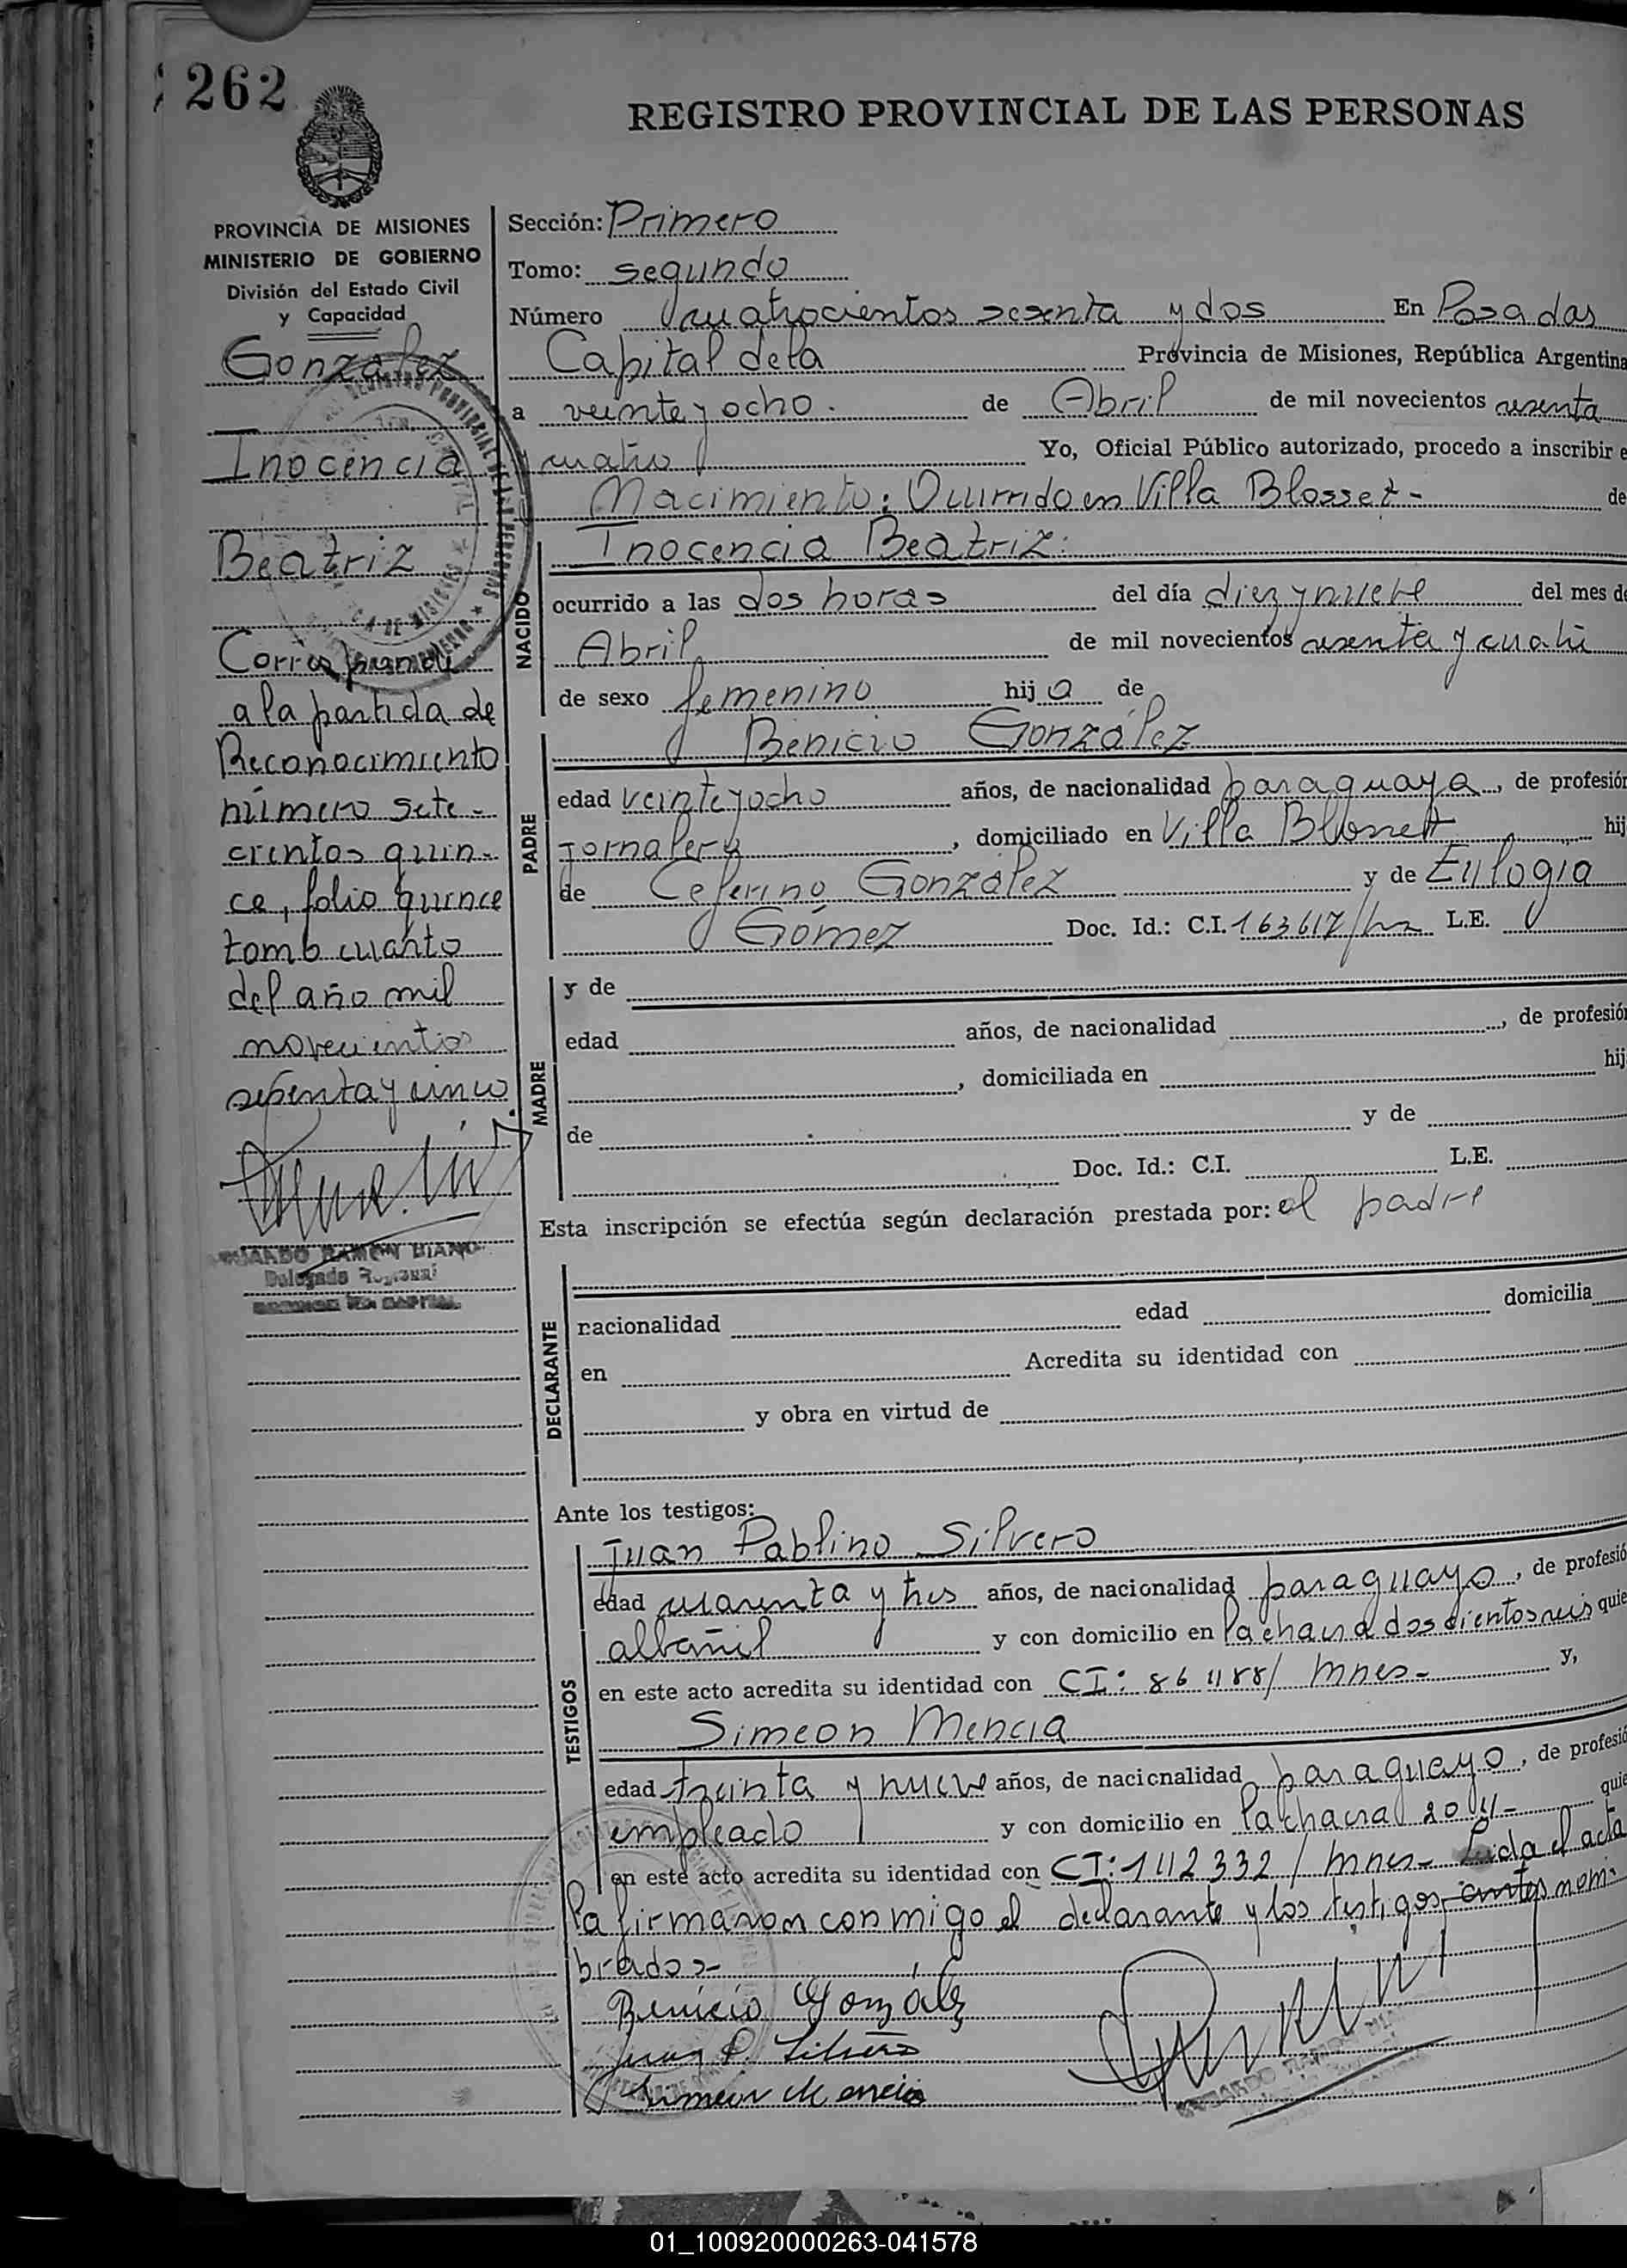 262
REGISTRO PROVINCIAL DE LAS PERSONAS
PROVINCIA DE MISIONES
MINISTERIO DE GOBIERNO
División del Estado Civil
y Capacidad
Gonzalez
Inocencia
Beatriz
Corresponde
a la partida de
Reconocimiento
número sete-
cientos quin-
ce, folio quince
tomo cuarto
del año mil
novecientos
setenta y cinco
RAMON
Delegado Regional
CAPITAL
Sección: Primero
Tomo: segundo
Número cuatrocientos sesenta y dos En Posadas
Capital de la Provincia de Misiones, República Argentina
a veinte y ocho. de Abril de mil novecientos sesenta
cuatro Yo, Oficial Público autorizado, procedo a inscribir e
Nacimiento: Ocurrido en Villa Blosset- de
Inocencia Beatriz.
NACIDO
ocurrido a las dos horas del día diez y nueve del mes de
Abril de mil novecientos sesenta y cuatro
de sexo femenino hija de
Benicio González
PADRE
edad veinte y ocho años, de nacionalidad paraguaya, de profesión
jornalero, domiciliado en Villa Blosset hij
de Ceferino González y de Eulogia
Gómez Doc. Id.: C.I. 163617/ L.E.
MADRE
y de
edad años, de nacionalidad , de profesión
, domiciliada en hij
de y de
Doc. Id.: C.I. L.E.
Esta inscripción se efectúa según declaración prestada por: el padre
DECLARANTE
nacionalidad edad domicilia
en Acredita su identidad con
y obra en virtud de
Ante los testigos:
Juan Pablino Silvero
TESTIGOS
edad cuarenta y tres años, de nacionalidad paraguayo, de profesió
albañil y con domicilio en la chacra doscientos seis quie
en este acto acredita su identidad con CI: / mnes- y,
Simeon Mencia
edad treinta y nueve años, de nacionalidad paraguayo, de profesió
empleado y con domicilio en la chacra 204- quie
en este acto acredita su identidad con CI: 142332/ mnes- Leida el acta
la firmaron conmigo el declarante y los testigos antes nom-
brados-
Benicio González
Juan P. Silvero
Simeon Mencia
01_100920000263-041578